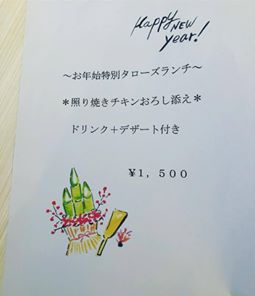 Happy NEW
year!
～お年始特別タローズランチ～
＊照り焼きチキンおろし添え＊
ドリンク＋デザート付き
￥１，５００